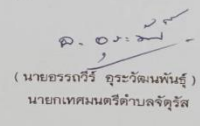 ( นายอรรถวีร์ อุระวัฒนพันธุ์ )
นายกเทศมนตรีตำบลจัตุรัส